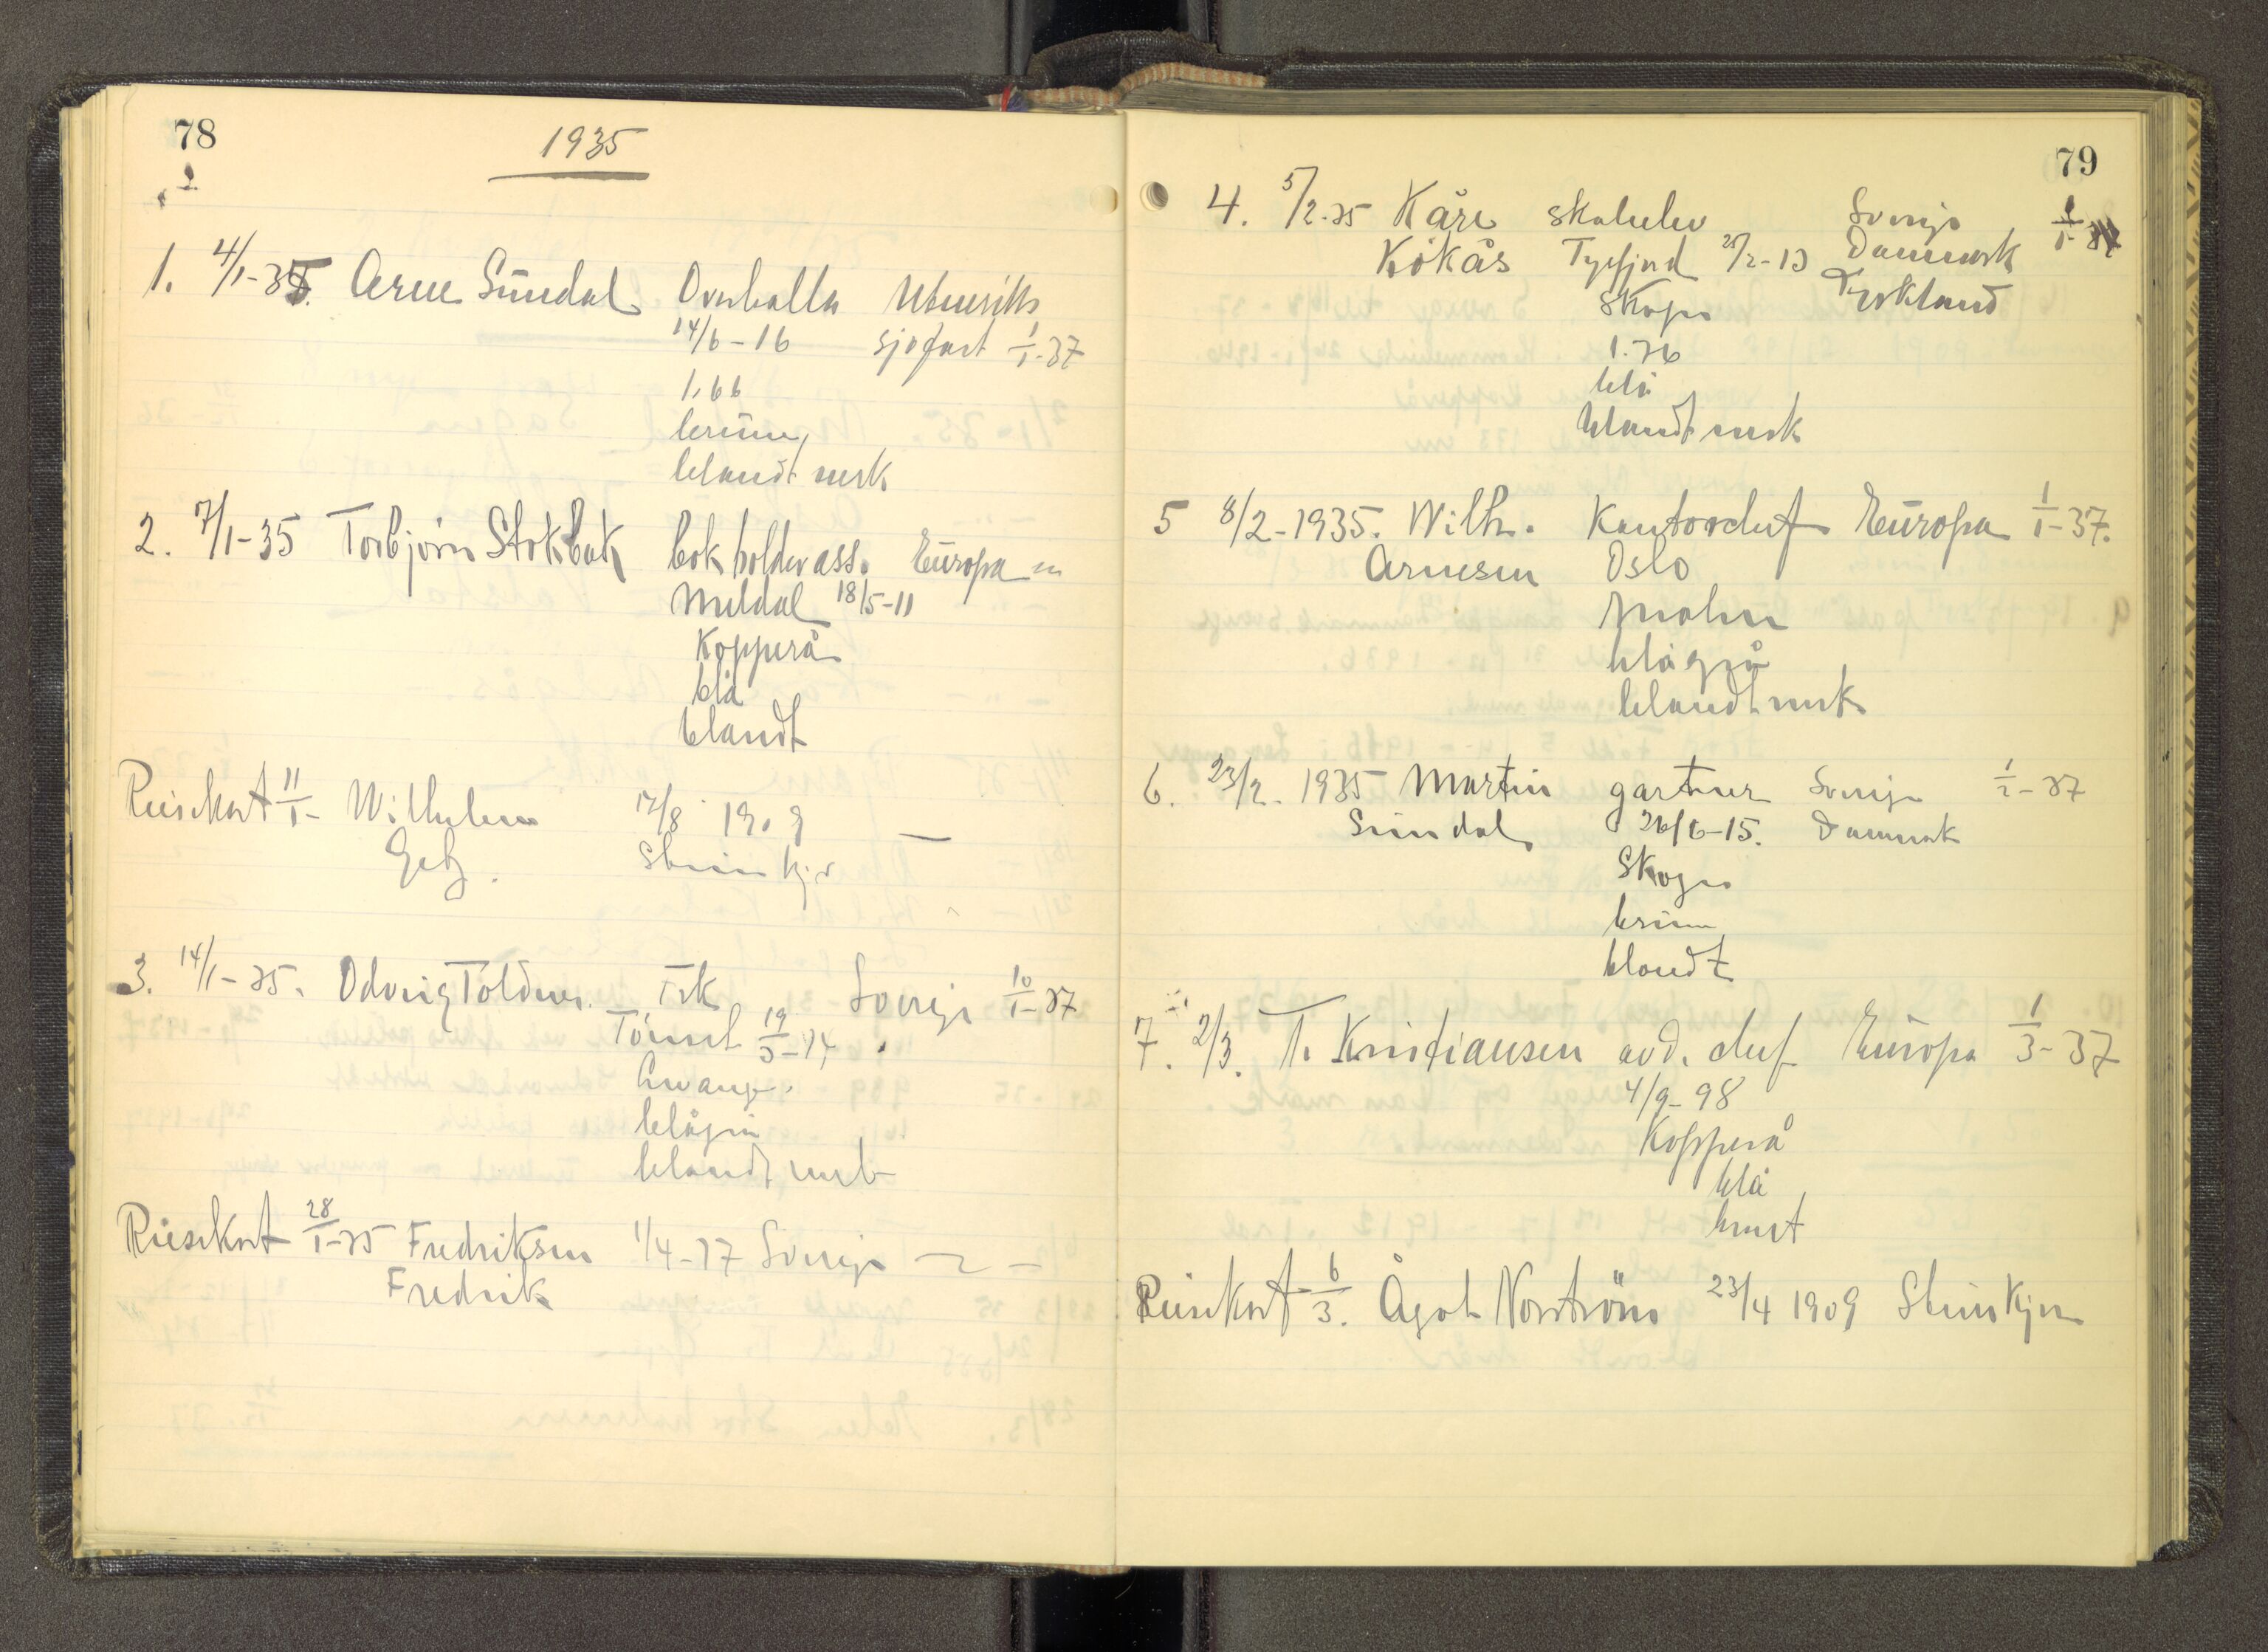 78
1935
1. 4/1-35. Arne Sundal Overhalla Utenriks
14/6-16 sjøfart 1/1-37
1,66
brune
blandt merk
2. 7/1-35 Torbjørn Stokbak bokholderass. Europa
Meldal 18/5-11
Kopperå
blå
blandt
Reisekort 11/1- Wilhelm 12/8 1909 —
Getz. Steinkjer
3. 14/1-35. Odveig Toldnes. Frk Sverige 10/1-37
Tønset 19/3-14
Levanger
blågrå
blandt merk
Reisekort 28/1-35 Fredriksen 1/4-17 Sverige
Fredrik
79
4. 5/2-35 Kåre skoleelev Sverige 1/1-37
Kokås Danmark
Skogn Tyskland
1.76
blå
blandt merk
5 8/2-1935. Wilh. Kontorchef Europa 1/1-37.
Arnesen Oslo
Malm
blå grå
blandt merk
6. 23/2. 1935 Martin gartner Sverige 1/2-37
Sundal 26/6-15. Danmark
Skogn
brun
blondt
7. 2/3. T. Kristiansen avd. chef Europa 1/3-37
4/9-98
Kopperå
blå
brunt
Reisekort 6/3. Ågot Norström 23/4 1909 Steinkjer